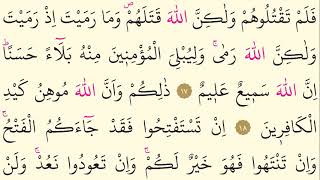 فَلَمْ تَقْتُلُوهُمْ وَلٰكِنَّ اللّٰهَ قَتَلَهُمْۖ وَمَا رَمَيْتَ اِذْ رَمَيْتَ
وَلٰكِنَّ اللّٰهَ رَمٰىۚ وَلِيُبْلِيَ الْمُؤْمِن۪ينَ مِنْهُ بَلَٓاءً حَسَنًاۜ
اِنَّ اللّٰهَ سَم۪يعٌ عَل۪يمٌ ١٧ ذٰلِكُمْ وَاَنَّ اللّٰهَ مُوهِنُ كَيْدِ
الْكَافِر۪ينَ ١٨ اِنْ تَسْتَفْتِحُوا فَقَدْ جَٓاءَكُمُ الْفَتْحُۚ
وَاِنْ تَنْتَهُوا فَهُوَ خَيْرٌ لَكُمْۚ وَاِنْ تَعُودُوا نَعُدْۚ وَلَنْ